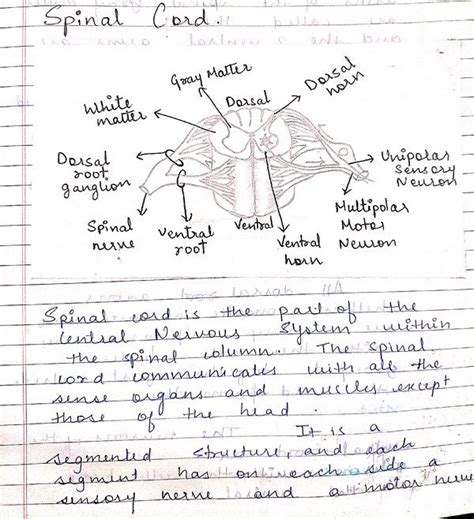 Spinal Cord.
Gray Matter
Dorsal horn
White matter
Dorsal
Dorsal root ganglion
Unipolar Sensory Neuron
Spinal nerve
Ventral root
Ventral
Ventral horn
Multipolar Motor Neuron
Spinal cord is the part of the
Central Nervous System within
the spinal column. The spinal
cord communicates with all the
sense organs and muscles except
those of the head.
It is a
segmented structure, and each
segment has on each side a
sensory nerve and a motor nerve